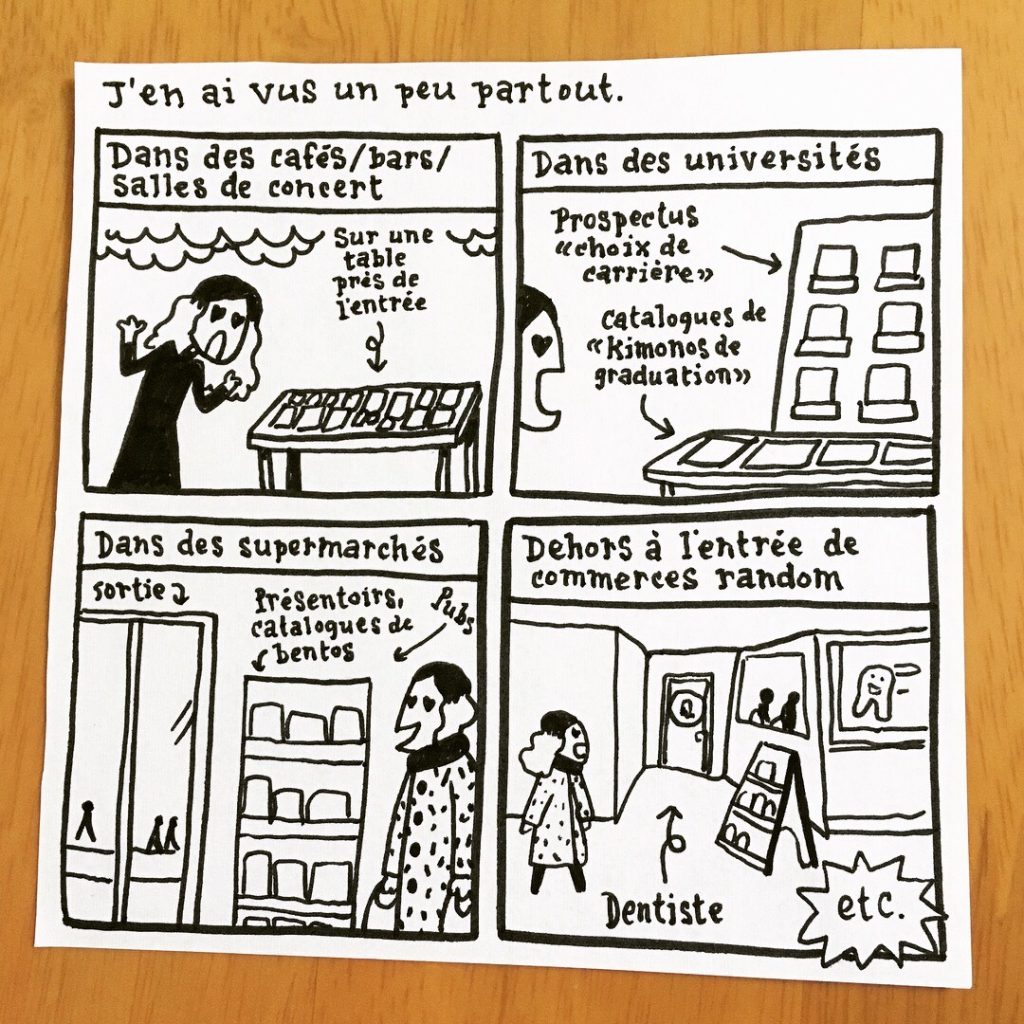 J'en ai vus un peu partout.
Dans des cafés/bars/
salles de concert
Sur une
table
près de
l'entrée
Dans des universités
Prospectus
«choix de
carrière»
catalogues de
«kimonos de
graduation»
Dans des supermarchés
sortie
Présentoirs,
catalogues de
bentos
Pubs
Dehors à l'entrée de
commerces random
Dentiste
etc.